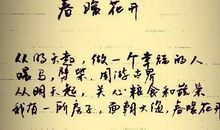 春暖花开
从明天起，做一个幸福的人
喂马，劈柴，周游世界
从明天起，关心粮食和蔬菜
我有一所房子，面朝大海，春暖花开